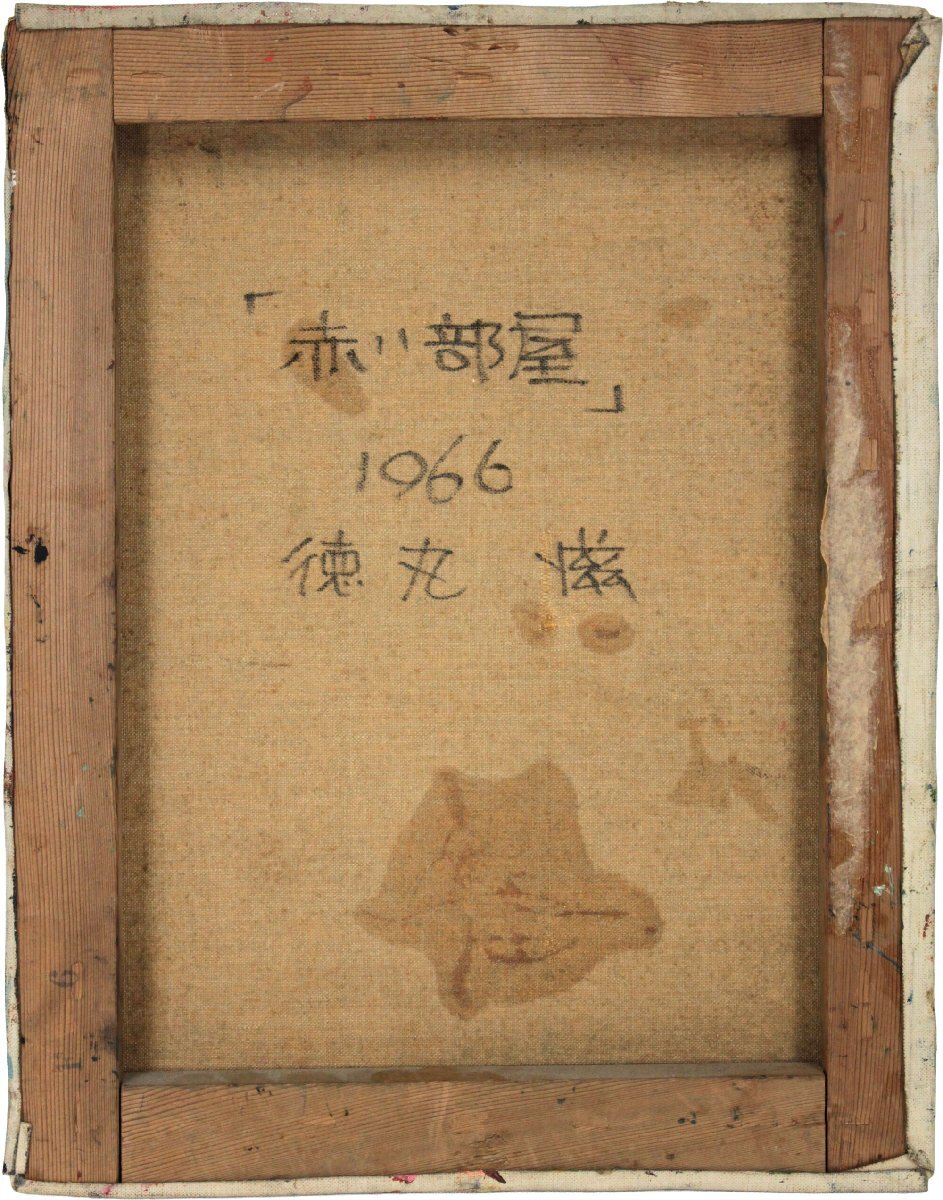 「赤い部屋」
1966
徳丸 滋
F 6